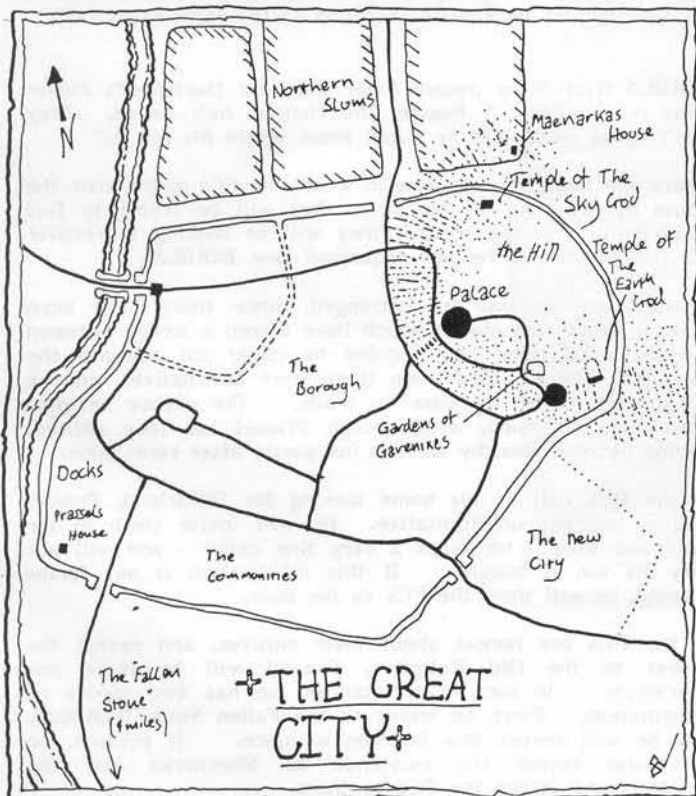 N
Northern
Slums
Maenarkas
House
Temple of The
Sky God
the Hill
Temple of
The
Earth
God
Palace
The
Borough
Gardens of
Docks
Prassels
House
The
The new
City
The Fallan
Stone
THE GREAT
CITY